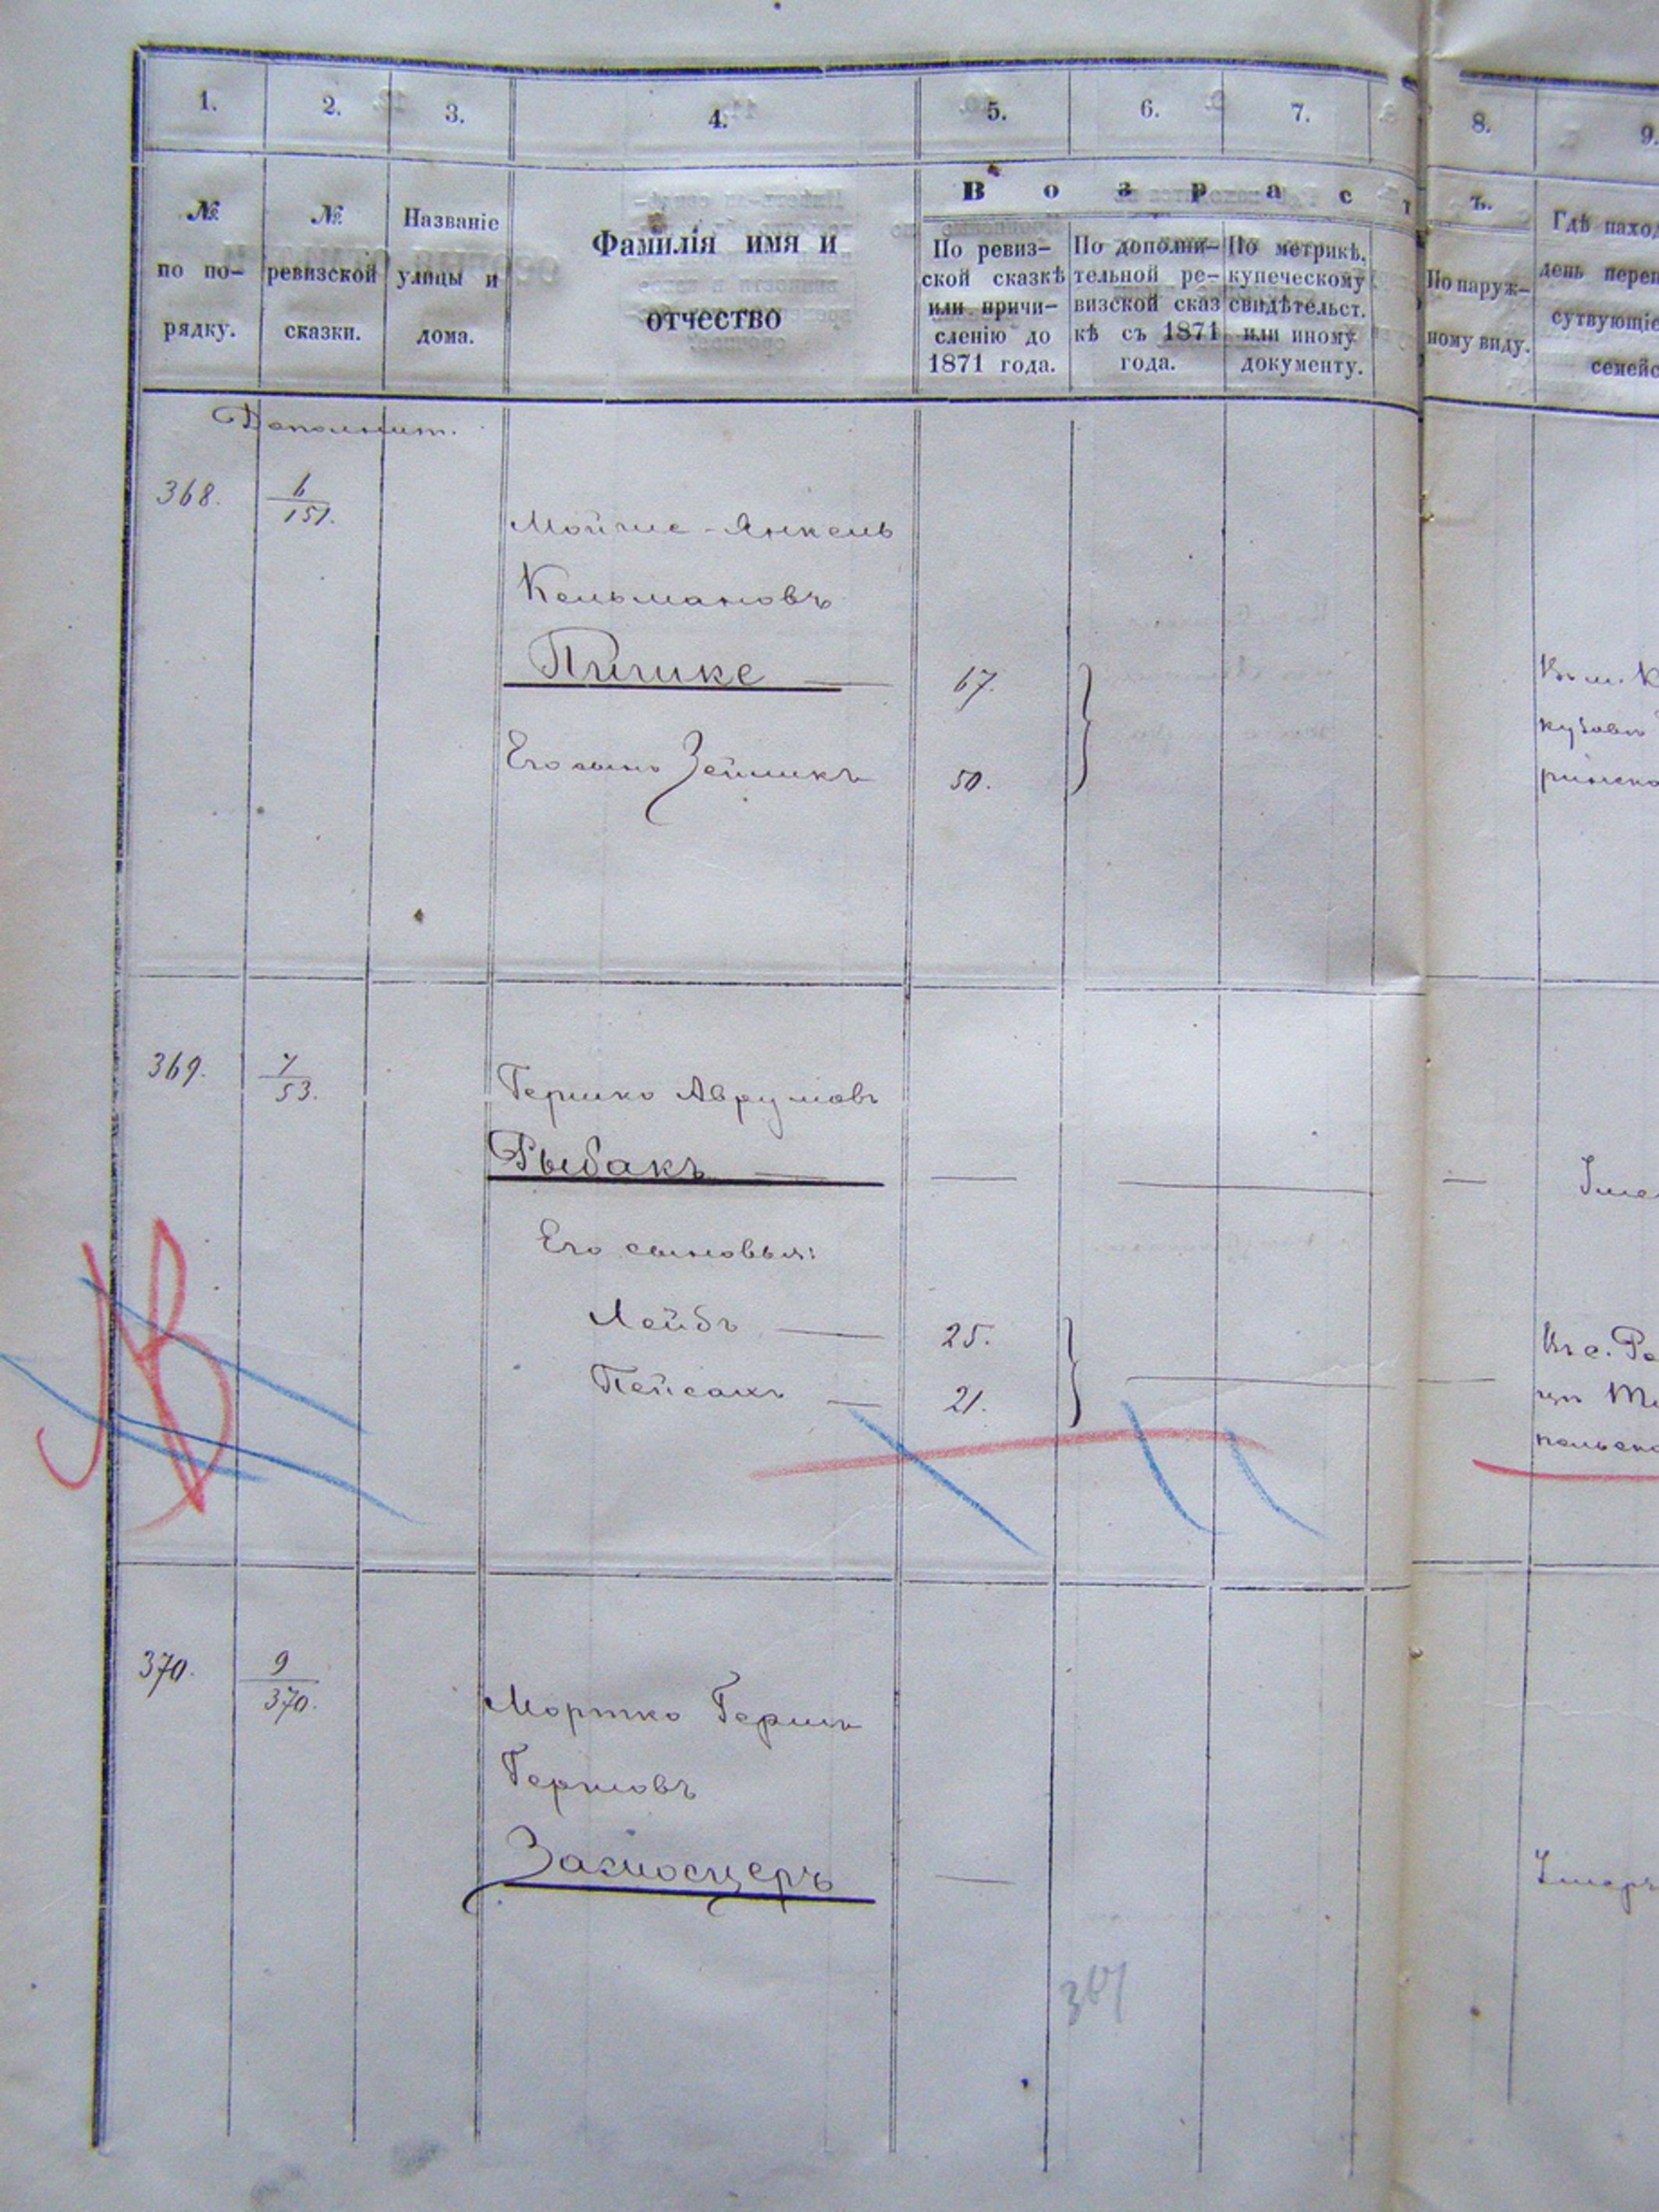 1. 2. 3. 4. 5. 6. 7. 8. 9.
№ по порядку.
№ ревизской сказки.
Названіе улицы и дома.
Фамилія имя и отчество
В о з р а с т ъ.
По ревизской сказкѣ или причисленію до 1871 года.
По дополнительной ревизской сказкѣ съ 1871 года.
По метрикѣ, купеческому свидѣтельст. или иному документу.
По наружному виду.
Гдѣ наход
день переп
сутвующіе
семейс
Дополнит.
368. 6/151.
Мойше-Янкель
Кельмановъ
67.
Его сынъ Зейликъ 50.
Въ м. К
кузовк
ринска
369. 7/53.
Гершко Аврумовъ
Рыбакъ — — — —
Его сыновья:
Лейбъ — 25.
Пейсахъ — 21.
Въ с. Ро
польско
370. 9/370.
Мортко Герш
Гершовъ
Замосцеръ —
Умеръ